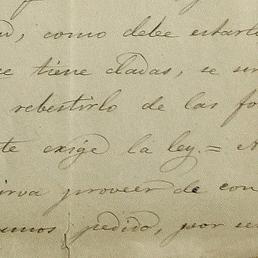 d, como debe estarlo
ce tiene dadas, se
rebestirlo de las fo
te exige la ley. = A
irva proveer de con
umos pedido, por se